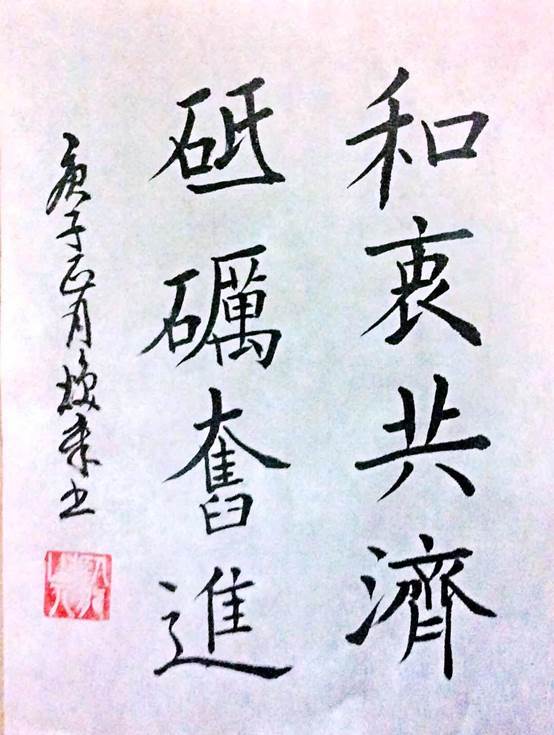 和衷共濟
砥礪奮進
庚子正月书